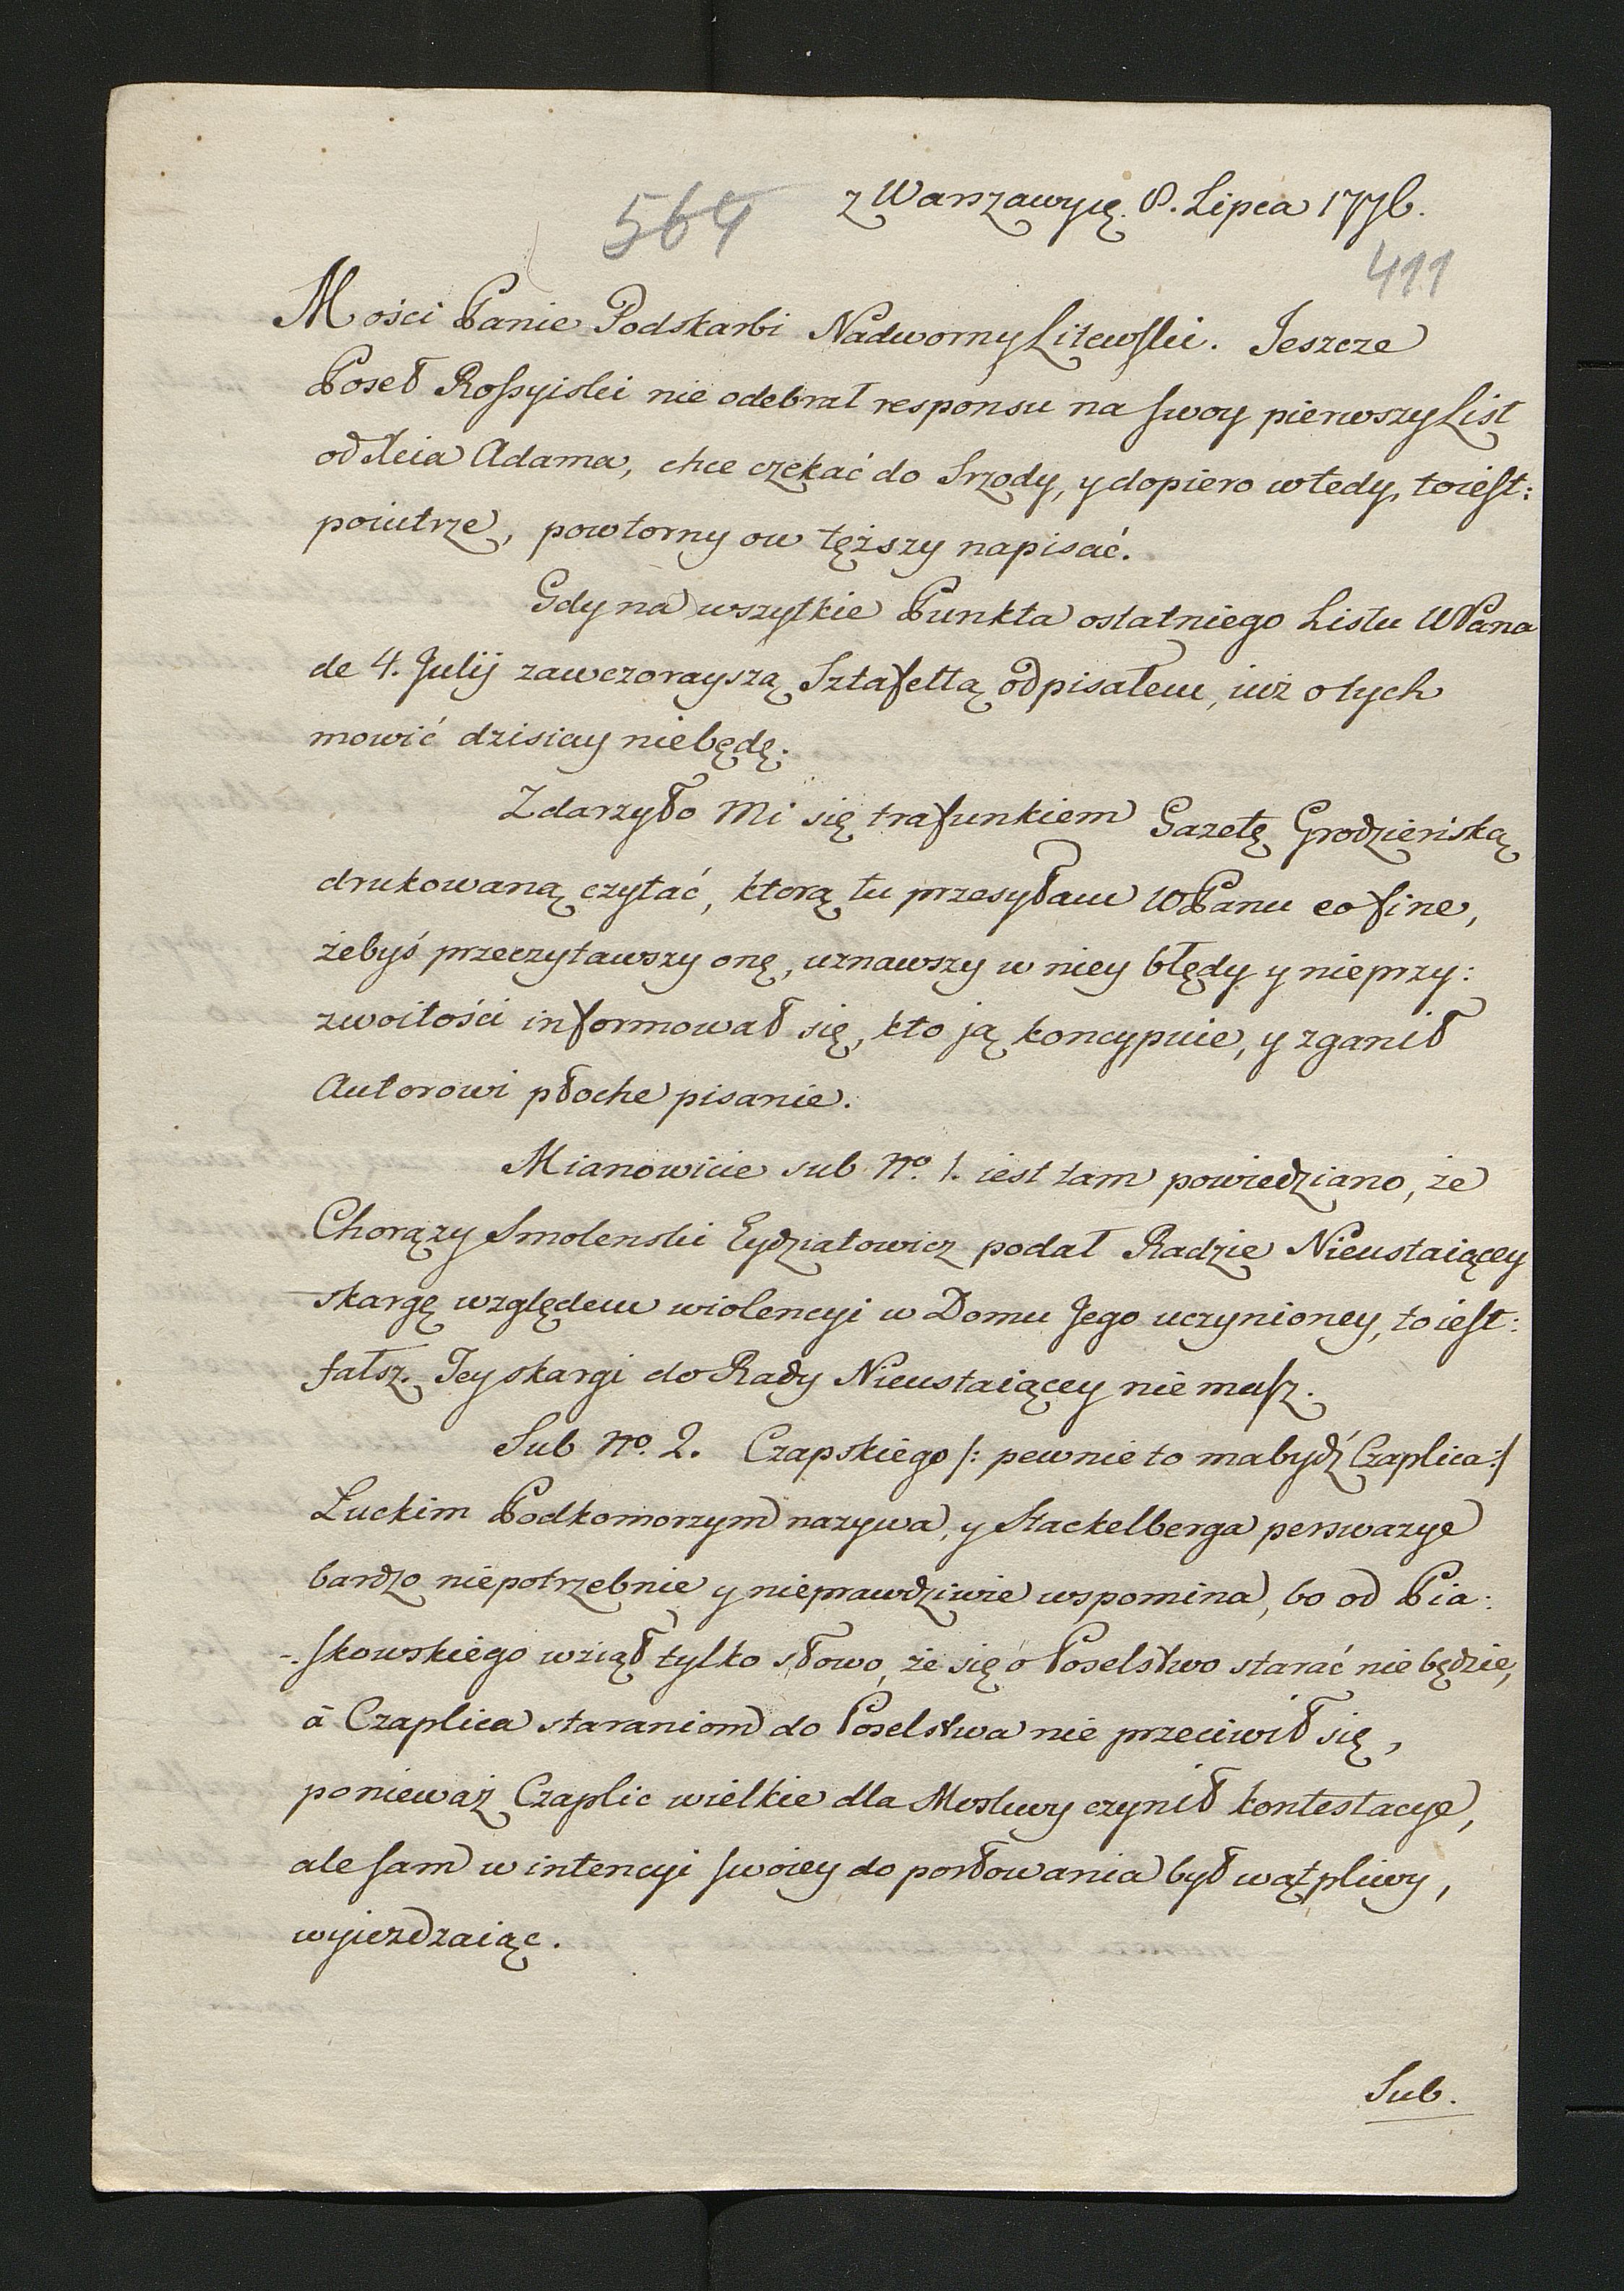 z Warszawy ię. 8. Lipca 1776.
564
411
Mości Panie Podskarbi Nadworny Litewski. Jeszcze
Poseł Rossyiski nie odebrał responsu na swoy pierwszy List
od Xcia Adama, chce czekać do Srzody, y dopiero wtedy, toiest:
poiutrze, powtorny ow tęższy napisać.
Gdy na wszytkie Punkta ostatniego Listu WPana
de 4. Julij zawczorayszą Sztafettą odpisałem, iuż o tych
mowić dzisiay niebędę.
Zdarzyło Mi się trafunkiem Gazetę Grodzieńską
drukowaną czytać, ktorą tu przesyłam WPanu eo fine,
żebyś przeczytawszy onę, uznawszy w niey błędy y nieprzy:
zwoitości informował się, kto ją koncypuie, y zganił
Autorowi płoche pisanie.
Mianowicie sub No. 1. iest tam powiedziano, że
Chorąży Smolenski Eydziatowicz podał Radzie Nieustaiącey
skargę względem wiolencyi w Domu Jego uczynioney, to iest:
fałsz. Jey skargi do Rady Nieustaiącey nie masz.
Sub No. 2. Czapskiego /: pewnie to mabydź Czaplica :/
Łuckim Podkomorzym nazywa, y Stackelberga perswazye
bardzo niepotrzebnie y nieprawdziwie wspomina, bo od Pia:
-skowskiego wziął tylko słowo, że się o Poselstwo starać nie będzie,
à Czaplica staraniom do Poselstwa nie przeciwił się,
ponieważ Czaplic wielkie dla Moskwy czynił kontestacye,
ale sam w intencyi swoiey do posłowania był wątpliwy,
wyieżdzaiąc.
Sub.